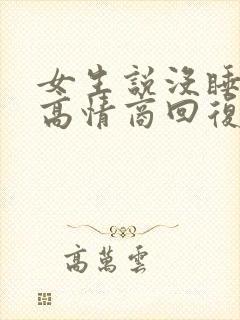 女生說沒睡
高情商回復
高萬雲